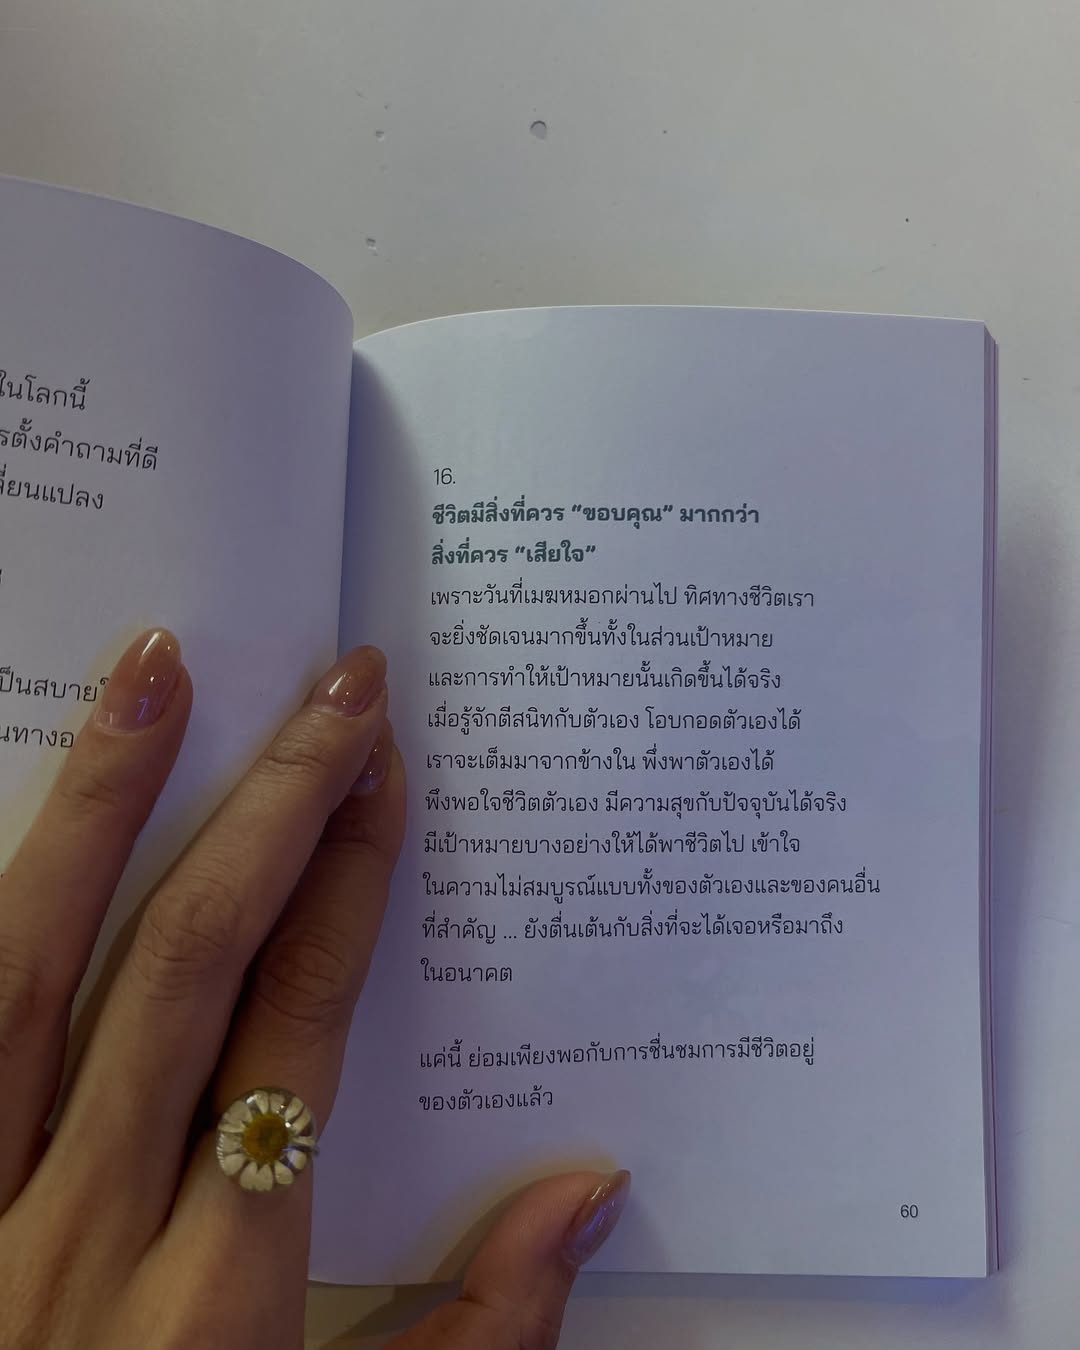 ในโลกนี้
ตั้งคำถามที่ดี
16.
ชีวิตมีสิ่งที่ควร “ขอบคุณ” มากกว่า
สิ่งที่ควร “เสียใจ”
เพราะวันที่เมฆหมอกผ่านไป ทิศทางชีวิตเรา
จะยิ่งชัดเจนมากขึ้นทั้งในส่วนเป้าหมาย
และการทำให้เป้าหมายนั้นเกิดขึ้นได้จริง
เมื่อรู้จักตีสนิทกับตัวเอง โอบกอดตัวเองได้
เราจะเต็มมาจากข้างใน พึ่งพาตัวเองได้
พึงพอใจชีวิตตัวเอง มีความสุขกับปัจจุบันได้จริง
มีเป้าหมายบางอย่างให้ได้พาชีวิตไป เข้าใจ
ในความไม่สมบูรณ์แบบทั้งของตัวเองและของคนอื่น
ที่สำคัญ ... ยังตื่นเต้นกับสิ่งที่จะได้เจอหรือมาถึง
ในอนาคต
แค่นี้ ย่อมเพียงพอกับการชื่นชมการมีชีวิตอยู่
ของตัวเองแล้ว
60